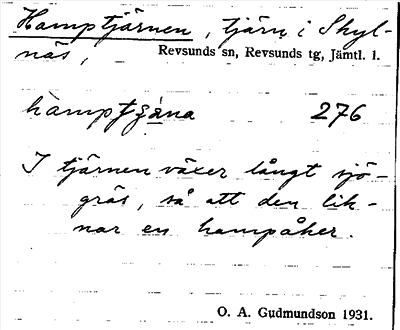 Hamptjärnen, tjärn i Skyl-
näs, Revsunds sn, Revsunds tg, Jämtl. l.
276
I tjärnen växer långt sjö-
gräs, så att den lik-
nar en hampåker.
O. A. Gudmundson 1931.